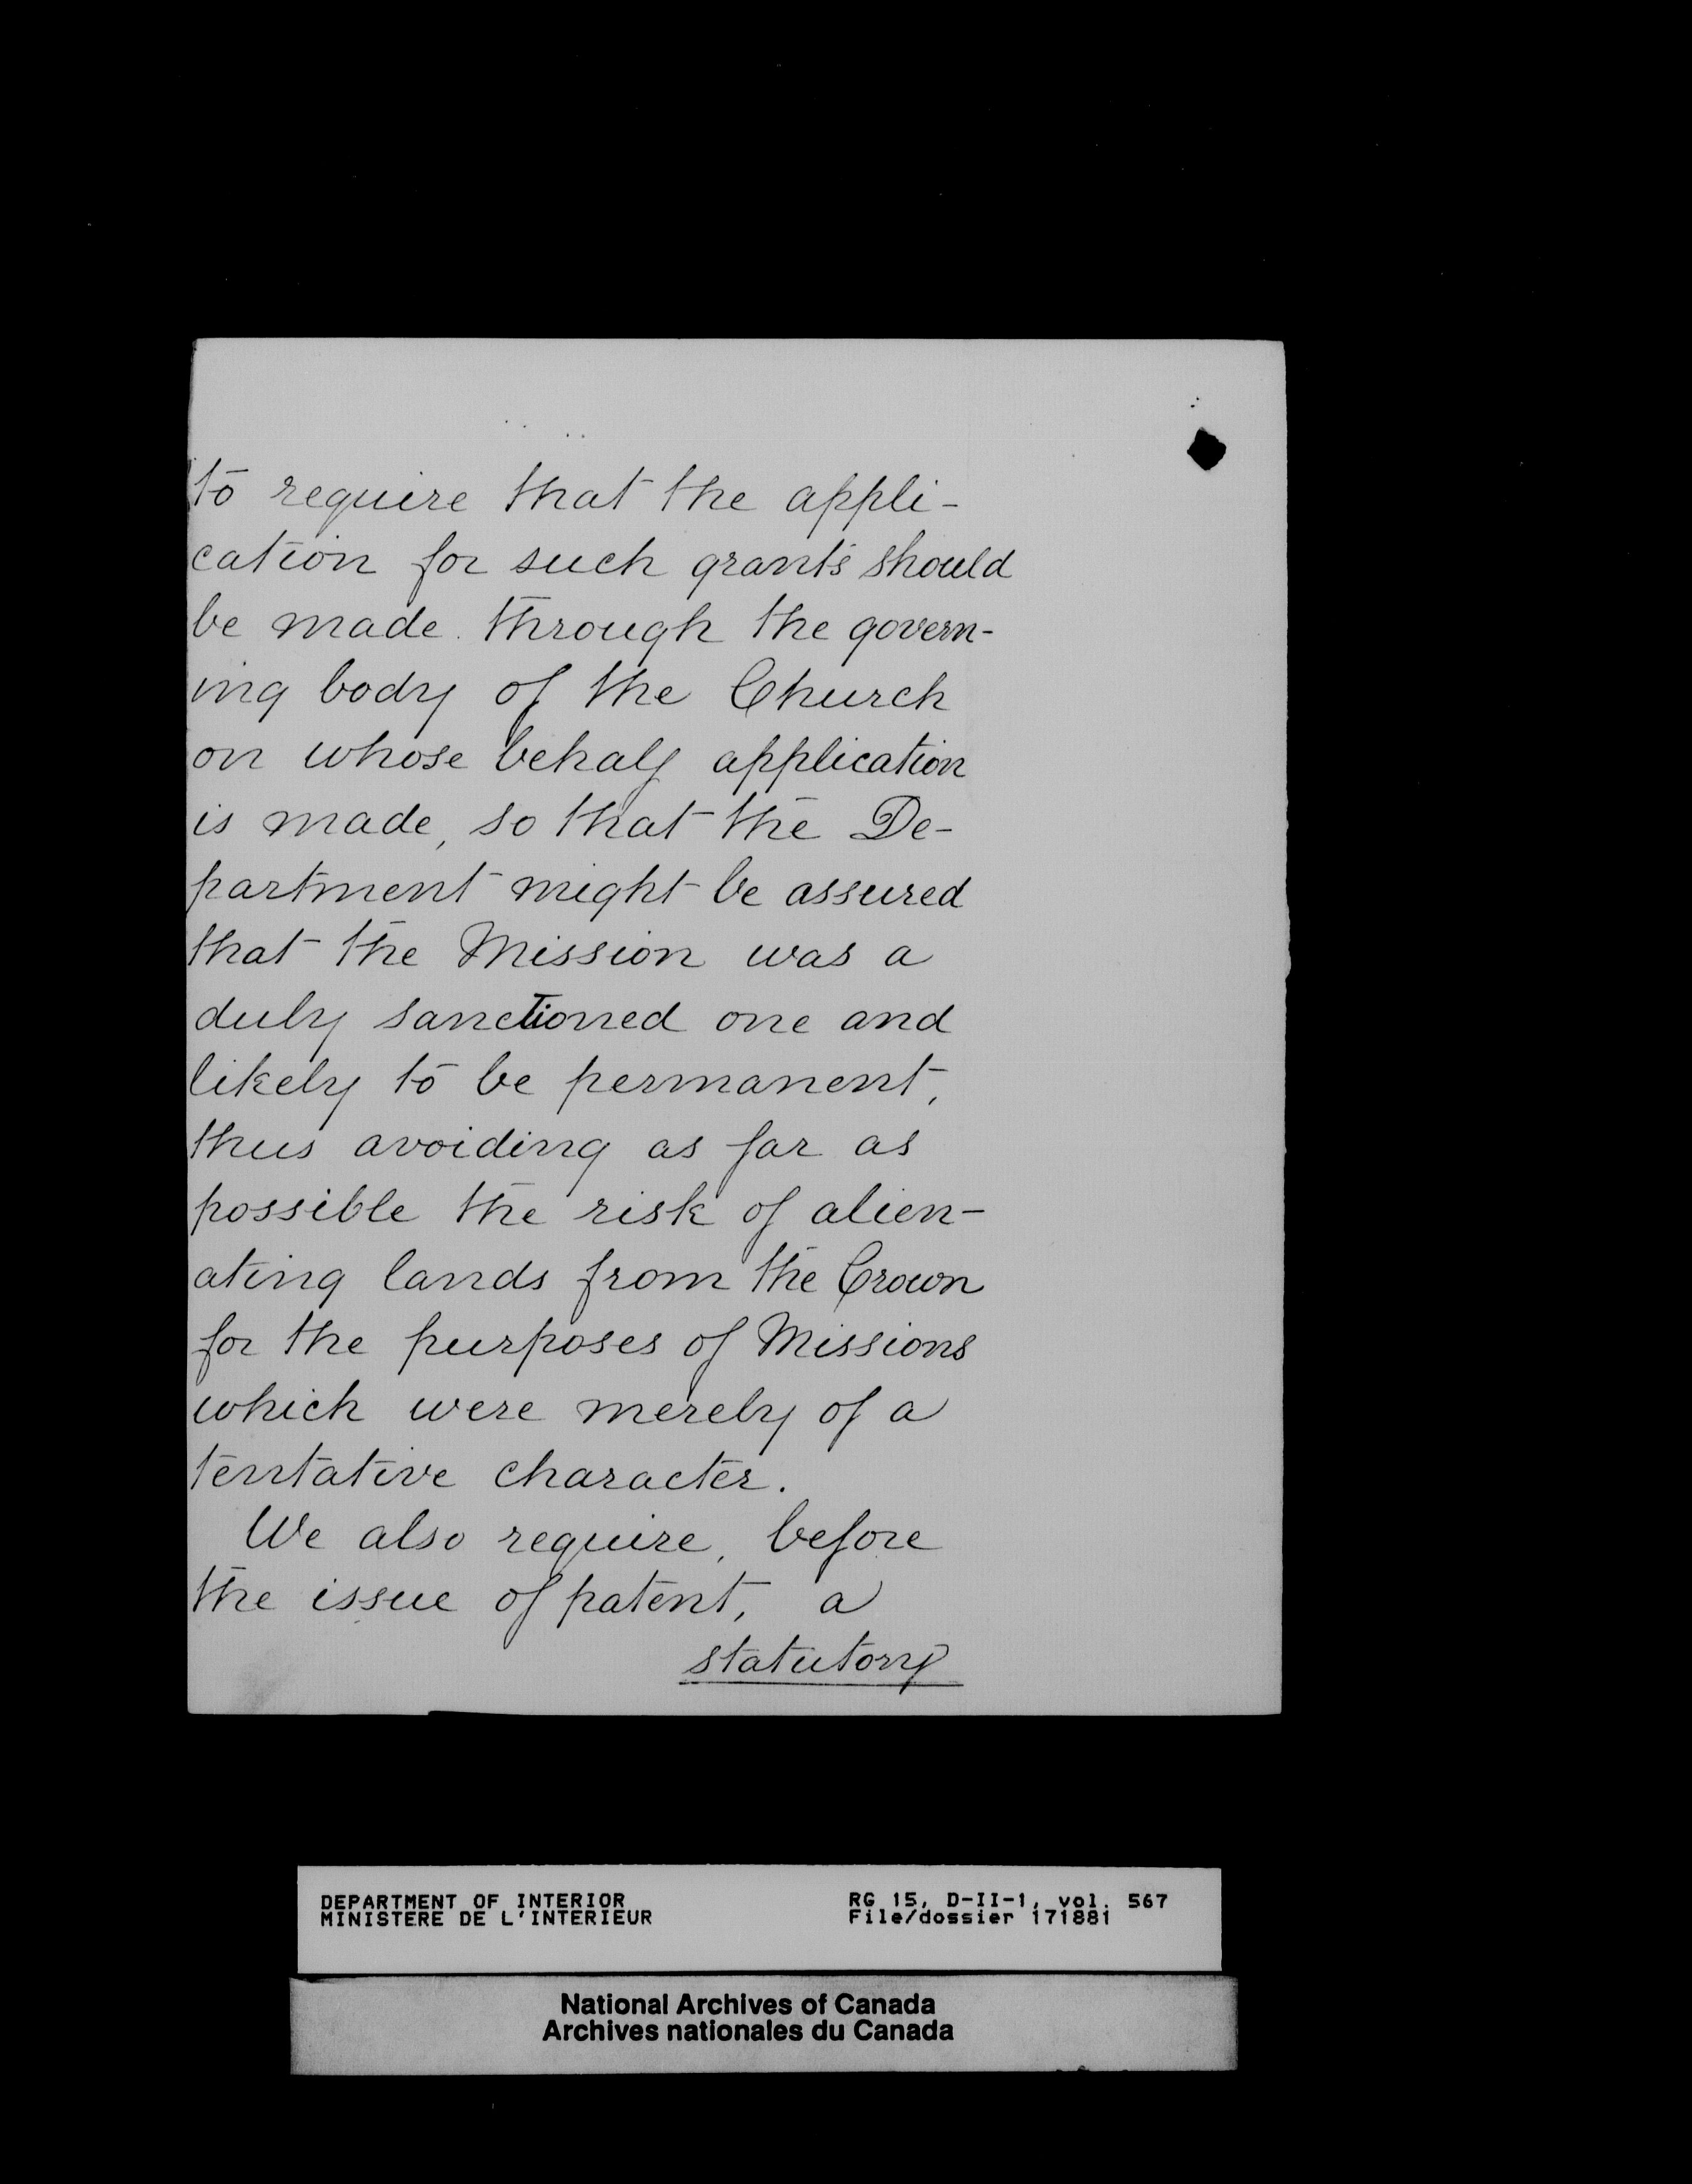 to require that the appli-
cation for such grants should
be made through the govern-
ing body of the Church
on whose behalf application
is made, so that the De-
partment might be assured
that the Mission was a
duly sanctioned one and
likely to be permanent,
thus avoiding as far as
possible the risk of alien-
ating lands from the Crown
for the purposes of Missions
which were merely of a
tentative character.
We also require, before
the issue of patent, a
statutory
DEPARTMENT OF INTERIOR
MINISTERE DE L'INTERIEUR
RG 15, D-II-1, vol. 567
File/dossier 171881
National Archives of Canada
Archives nationales du Canada